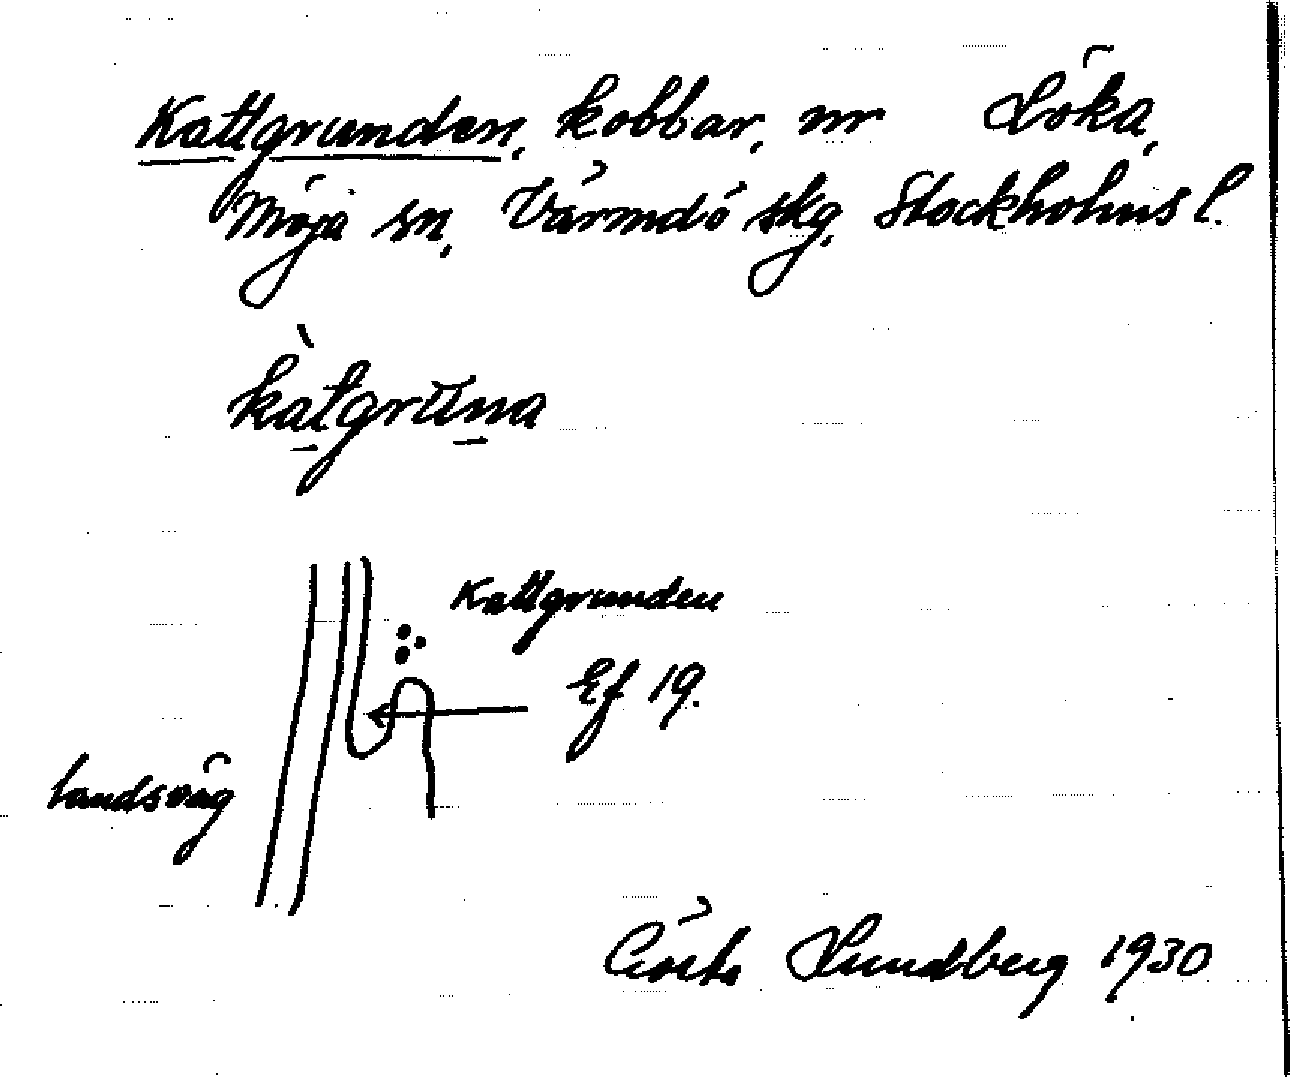 Kattgrunden, kobbar, nr Löka,
Möja sn, Värmdö skg, Stockholms l.
kàtgrŭna
Kattgrunden
Ef 19.
landsväg
Gösta Lundberg 1930